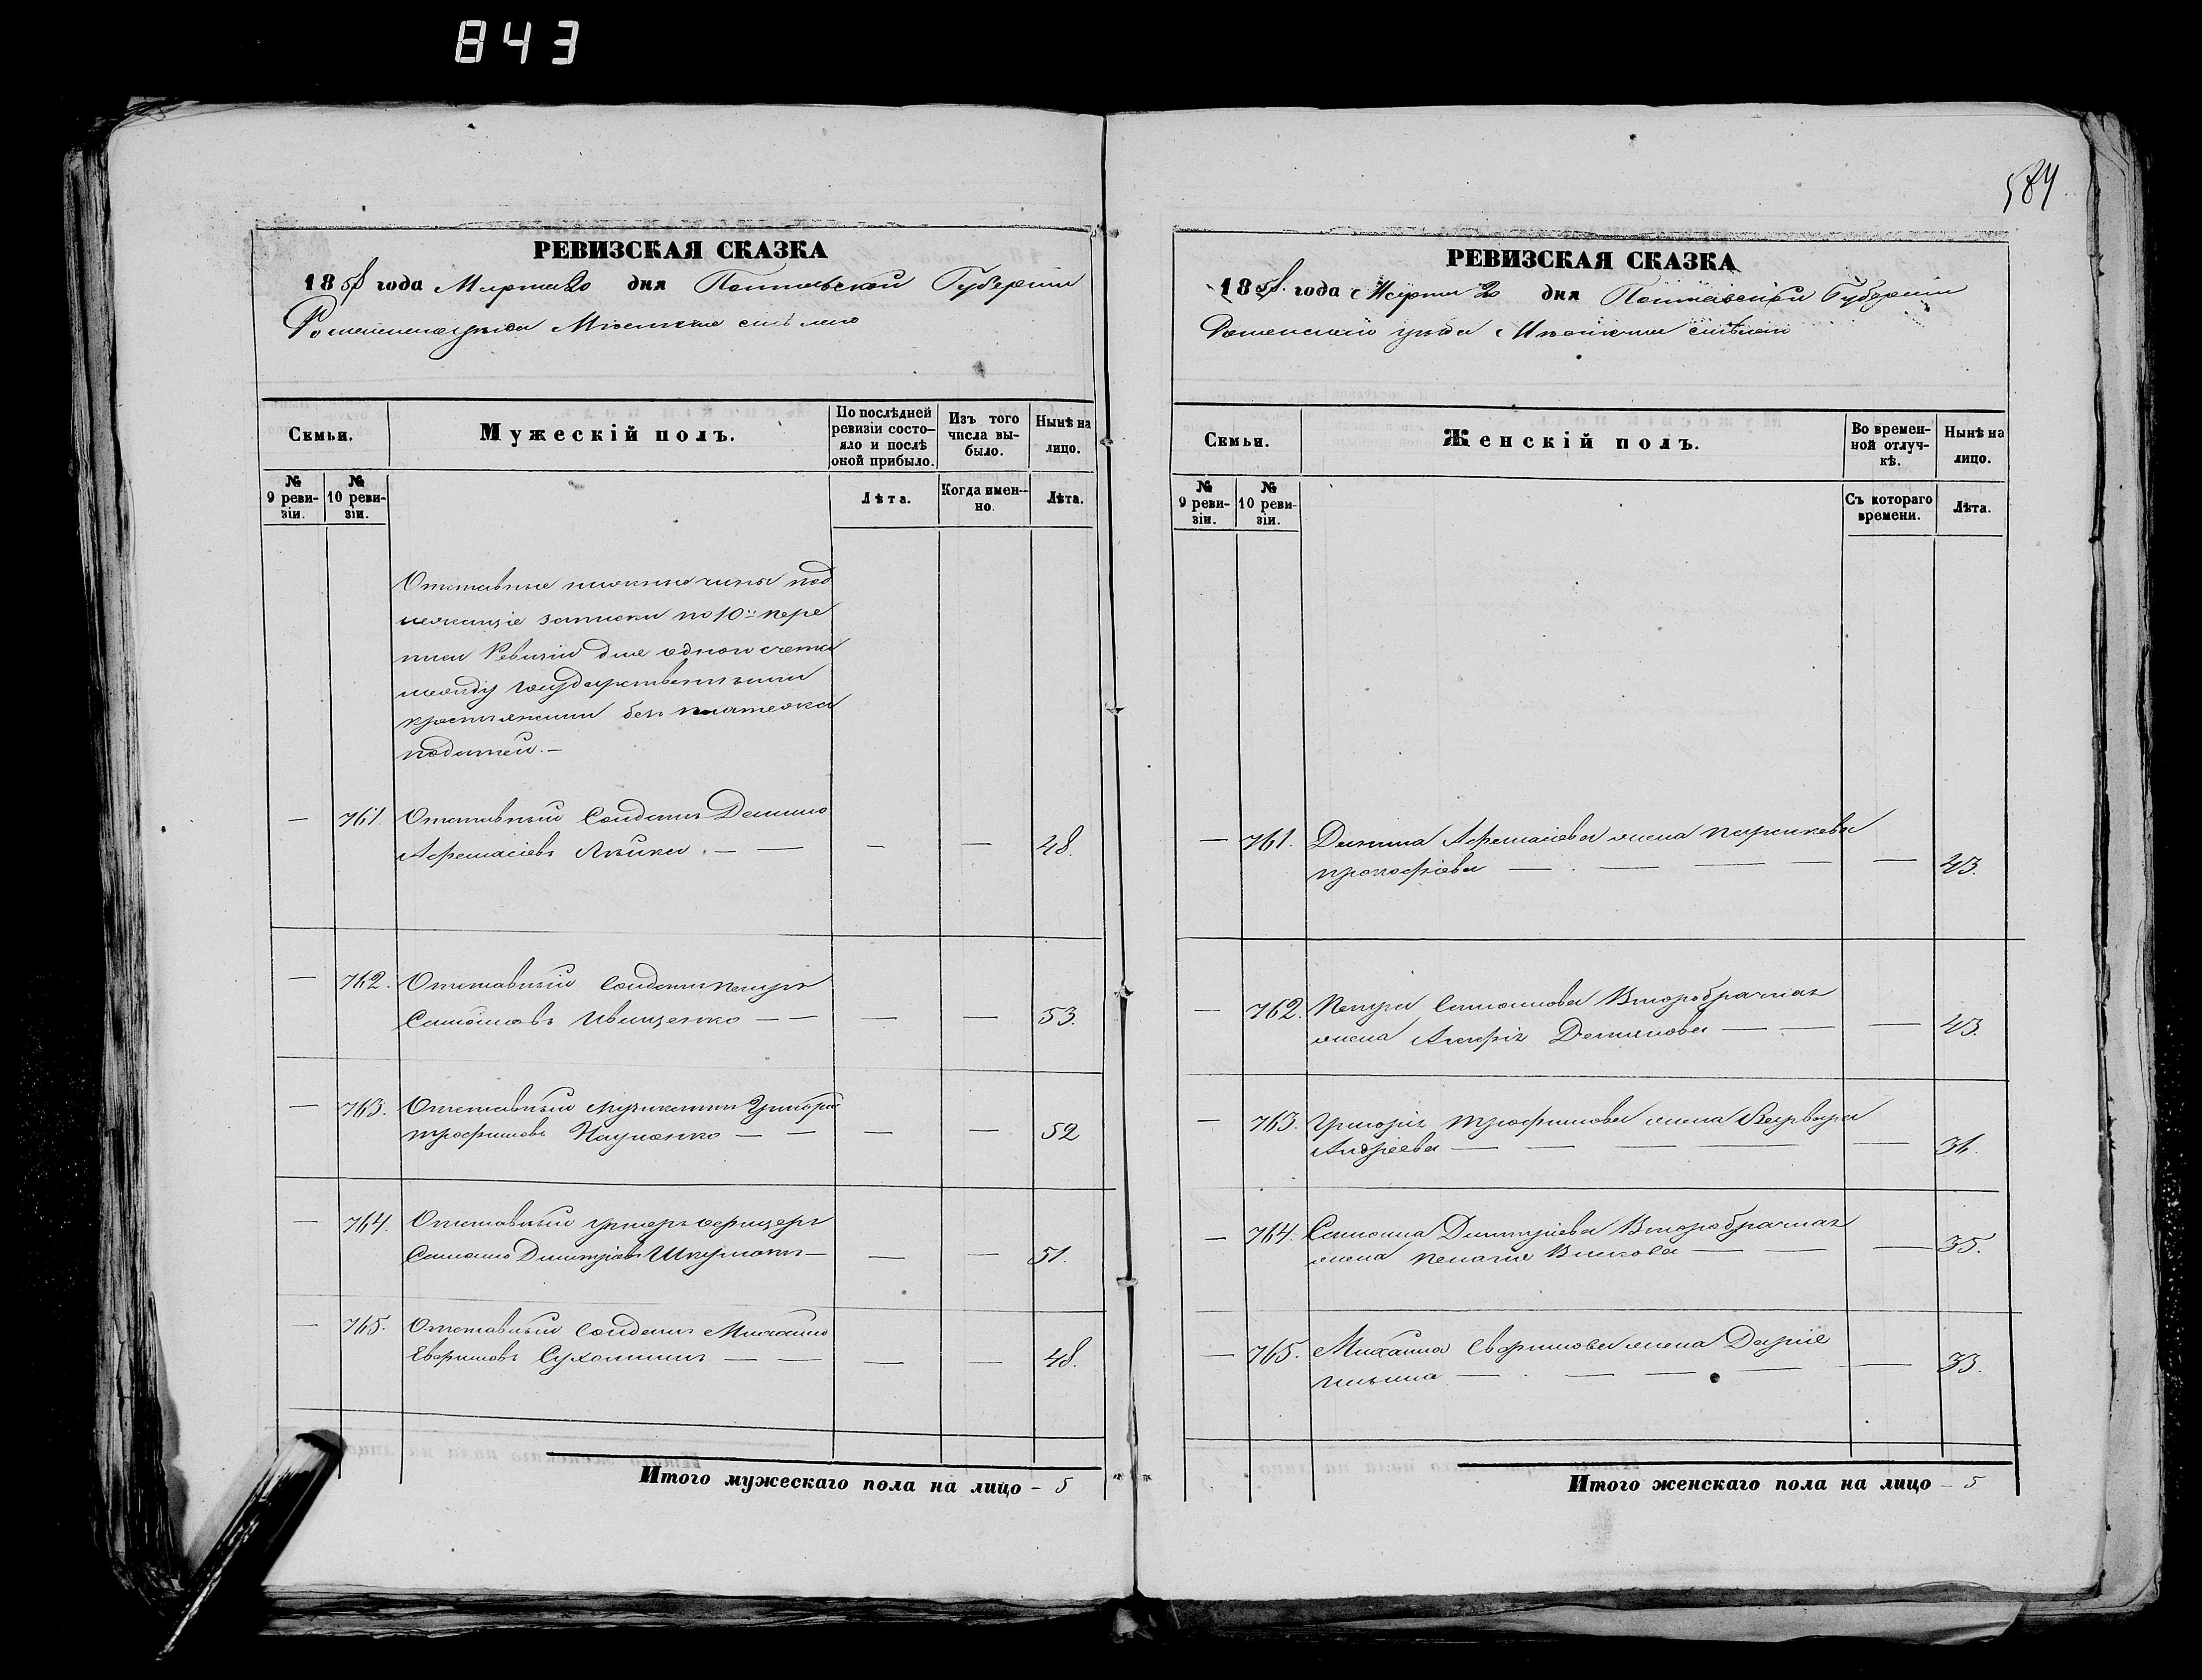 843
584
РЕВИЗСКАЯ СКАЗКА
1858 года Марта 20 дня Полтавской Губернии
Роменскаго уезда Местечка
Семьи.
Мужескій полъ.
По послѣдней ревизіи состояло и послѣ оной прибыло.
Изъ того числа выбыло.
Нынѣ на лицо.
№ 9 ревизіи.
№ 10 ревизіи.
Лѣта.
Когда именно.
Лѣта.
Отставные нижние чины под
лежащіе записки по 10й пере
писи Ревизіи для одного счета
между государственными
крестьянами безъ платежа
податей. —
— 761. Отставный Солдатъ Данило
Афанасіевъ — — — — 48.
— 762. Отставный Солдатъ Петръ
Самойловъ Иващенко — — — — 53.
— 763. Отставный Музикантъ Григорій
Трофимовъ Науменко — — — — 52
— 764. Отставный унтеръ офицеръ
Самойло Дмитріевъ — — — 51.
— 765. Отставный Солдатъ Михайло
Евфимовъ — — — — 48.
Итого мужескаго пола на лицо — 5
РЕВИЗСКАЯ СКАЗКА
1858 года Марта 20 дня Полтавской Губерніи
Роменскаго уезда Местечка
Семьи.
Женскій полъ.
Во временной отлучкѣ.
Нынѣ на лицо.
№ 9 ревизіи.
№ 10 ревизіи.
Съ котораго времени.
Лѣта.
— 761. Данила Афанасіева жена
Прокофіева — — — — — 43.
— 762. Петра Самойлова Второбрачная
жена Демянова — — — 43.
— 763. Григорія Трофимова жена Варвара
Андреева — — — — — 31.
— 764. Самойла Дмитріева Второбрачная
жена Пелагия — — — 35.
— 765. Михайла Евфимова жена Дария
Ильина — — — — 33.
Итого женскаго пола на лицо — 5